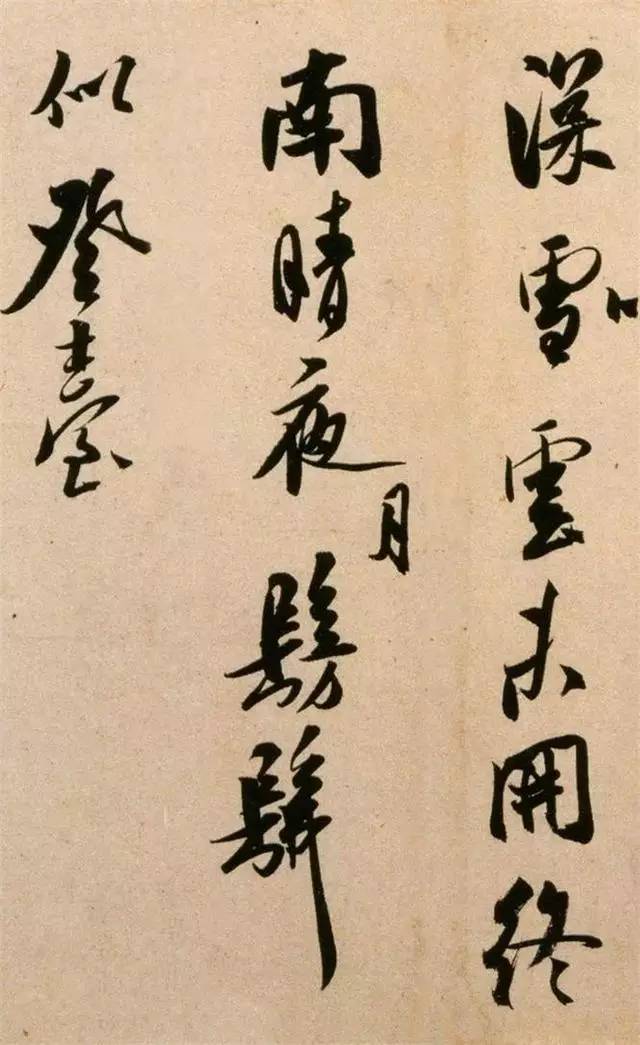 深雪雲未開終
南晴夜月髣髴
似登臺